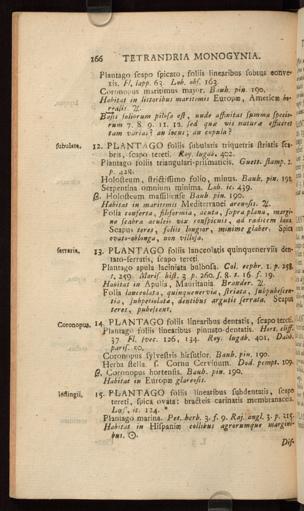 166 TETRANDRIA MONOGYNIA.
Plantago scapo spicato, foliis linearibus subtus conve-
xis. Fl. lapp. 63. Lob. obs. 163.
Coronopus maritimus major. Bauh. pin. 190.
Habitat in littoribus maritimis Europæ, Americæ bo-
realis. ♃.
Basis foliorum pilosa est, unde affinitas summa specie-
rum 7. 8. 9. 11. 12. sed quæ vis naturæ efficeret
tam varias? an locus; an copula?
subulata. 12. PLANTAGO foliis subulatis triquetris striatis sca-
bris, scapo tereti. Roy. lugdb. 402.
Plantago foliis triangulari-prismaticis. Guett. stamp. 2.
p. 428.
Holosteum, strictissimo folio, minus. Bauh. pin. 191.
Serpentina omnium minima. Lob. ic. 439.
β. Holosteum massiliense Bauh. pin. 190.
Habitat in maritimis Mediterranei arenosis. ♃.
Folia conferta, filiformia, acuta, supra plana, margi-
ne scabra aculeis vix conspicuis, ad radicem lana.
Scapus teres, foliis longior, minime glaber. Spica
ovato-oblonga, non villosa.
serraria. 13. PLANTAGO foliis lanceolatis quinquenerviis den-
tato-serratis, scapo tereti
Plantago apula laciniata bullosa. Col. ecphr. 1. p. 258.
t. 259. Moris. hist. 3. p. 260. s. 8. t. 16. f. 19.
Habitat in Apulia, Mauritania Brander. ♃
Folia lanceolata, quinquenervia, striata, subpubescen-
tia, subpetiolata, dentibus argutis serrata. Scapus
teres, pubescens.
Coronopus. 14. PLANTAGO foliis linearibus dentatis, scapo tereti.
Plantago foliis linearibus pinnato-dentatis. Hort. cliff.
37. Fl. svec. 126, 134. Roy. lugdb. 401. Dalib.
paris. 50.
Coronopus sylvestris hirsutior. Bauh. pin. 190.
Herba stella. s. Cornu Cervinum. Dod. pempt. 109.
β. Coronopus hortensis. Bauh. pin. 190.
Habitat in Europæ glareosis.
loeflingii. 15. PLANTAGO foliis linearibus subdentatis, scapo
tereti, spica ovata: bracteis carinatis membranaceis.
Loefl. it. 124. *
Plantago marina. Pet. herb. 3. f. 9. Raj. angl. 3. p. 315.
Habitat in Hispaniæ collibus agrorumque margini-
bus. ☉.
Dis-